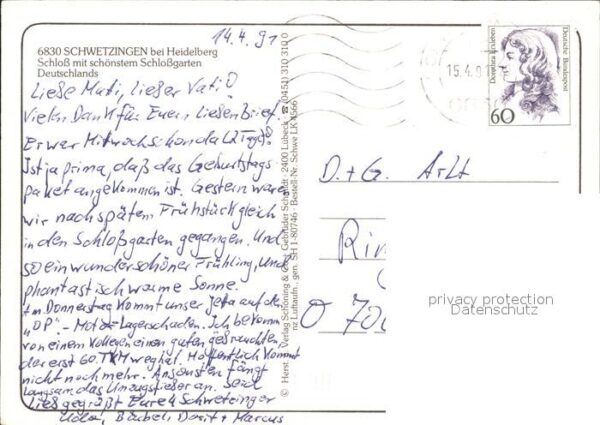 14.4.91
6830 SCHWETZINGEN bei Heidelberg
Schloß mit schönstem Schloßgarten
Deutschlands
Liebe Muti, lieber Vati!
Vielen Dank für Euren lieben Brief.
Er war Mittwoch schon da (2 Tage)!
Ist ja prima, daß das Geburtstags-
paket angekommen ist. Gestern waren
wir nach spätem Frühstück gleich
in den Schloßgarten gegangen. Und
so ein wunderschöner Frühling, und
phantastisch warme Sonne.
Am Donnerstag kommt unser Jetta auf den
"OP". - Motor-Lagerschaden. Ich bekomm
von einem Kollegen einen guten gebrauchten,
der erst 60. TKM weg hat. Hoffentlich kommt
nicht noch mehr. Ansonsten fängt
langsam das Umzugsfieber an. Seid
lieb gegrüßt Eure 4 Schwetzinger
Bärbel, Dorit + Marcus
© Horst Verlag Schöning & Co + Gebrüder Schmidt · 2400 Lübeck · ☎ (0451) 310 310 0
nz Luftaufn., gen. SH 1-80746 Bestell-Nr. Schwe LK 4366
15.4.91
Dorothea Erxleben
Deutsche Bundespost
60
D.+G. Arlt
Rin
O 70
privacy protection
Datenschutz